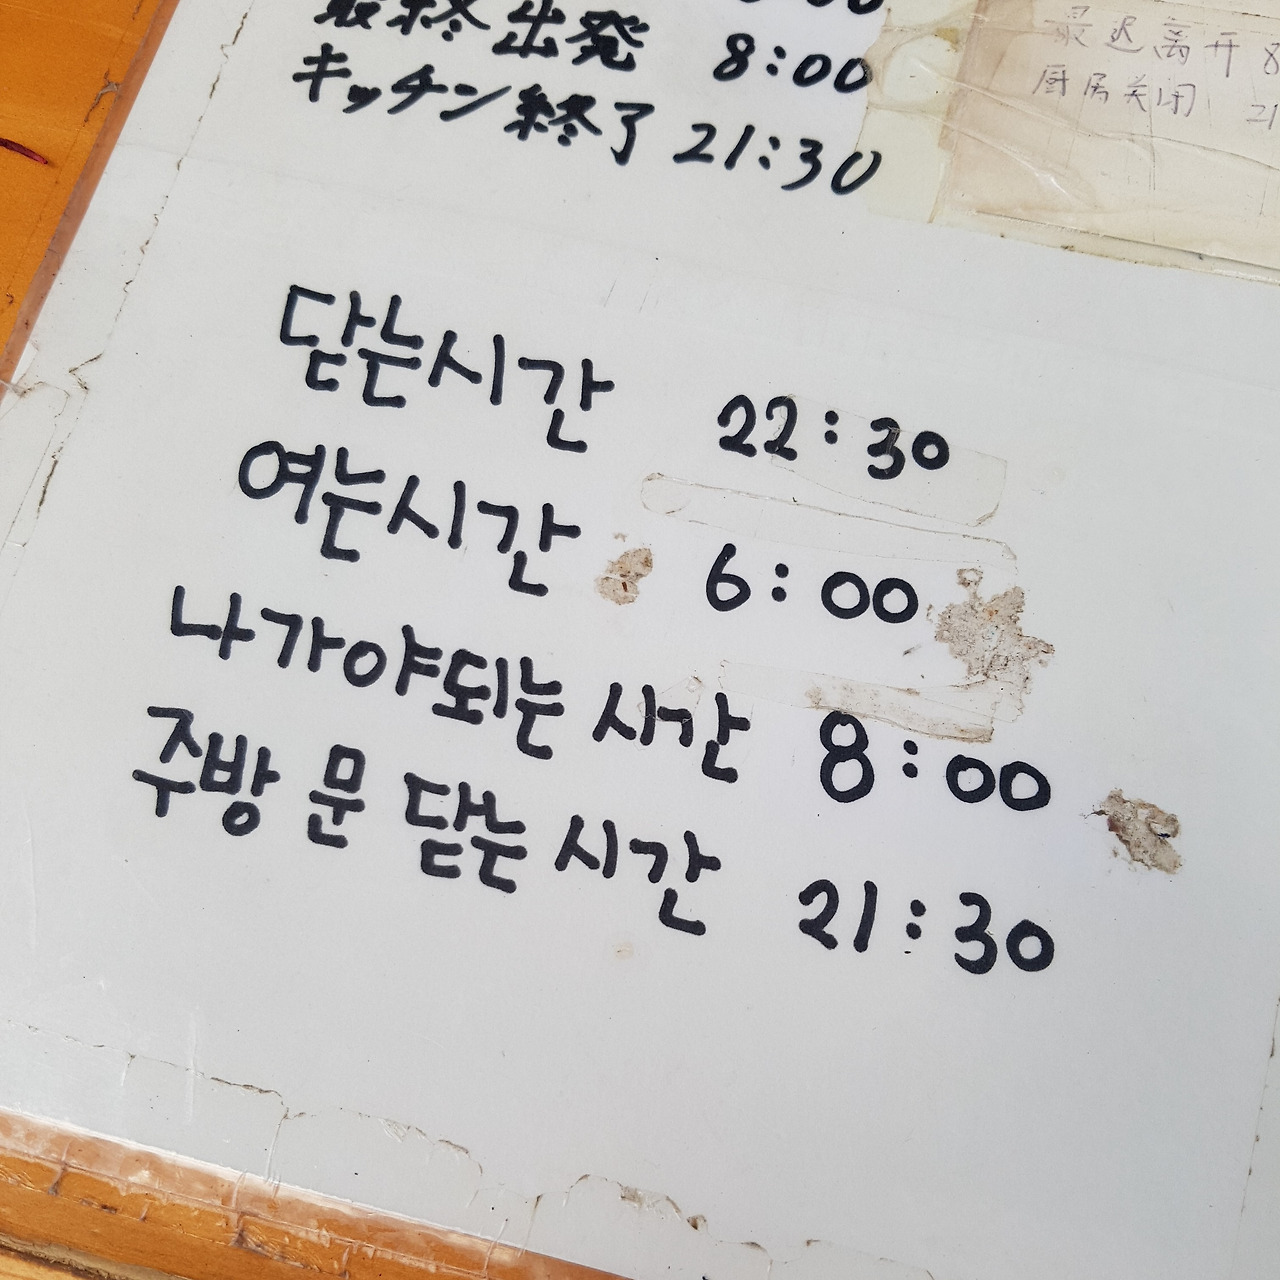 最終出発 8:00
キッチン終了 21:30
最迟离开 8
厨房关闭 21
닫는시간 22:30
여는시간 6:00
나가야되는 시간 8:00
주방 문 닫는 시간 21:30